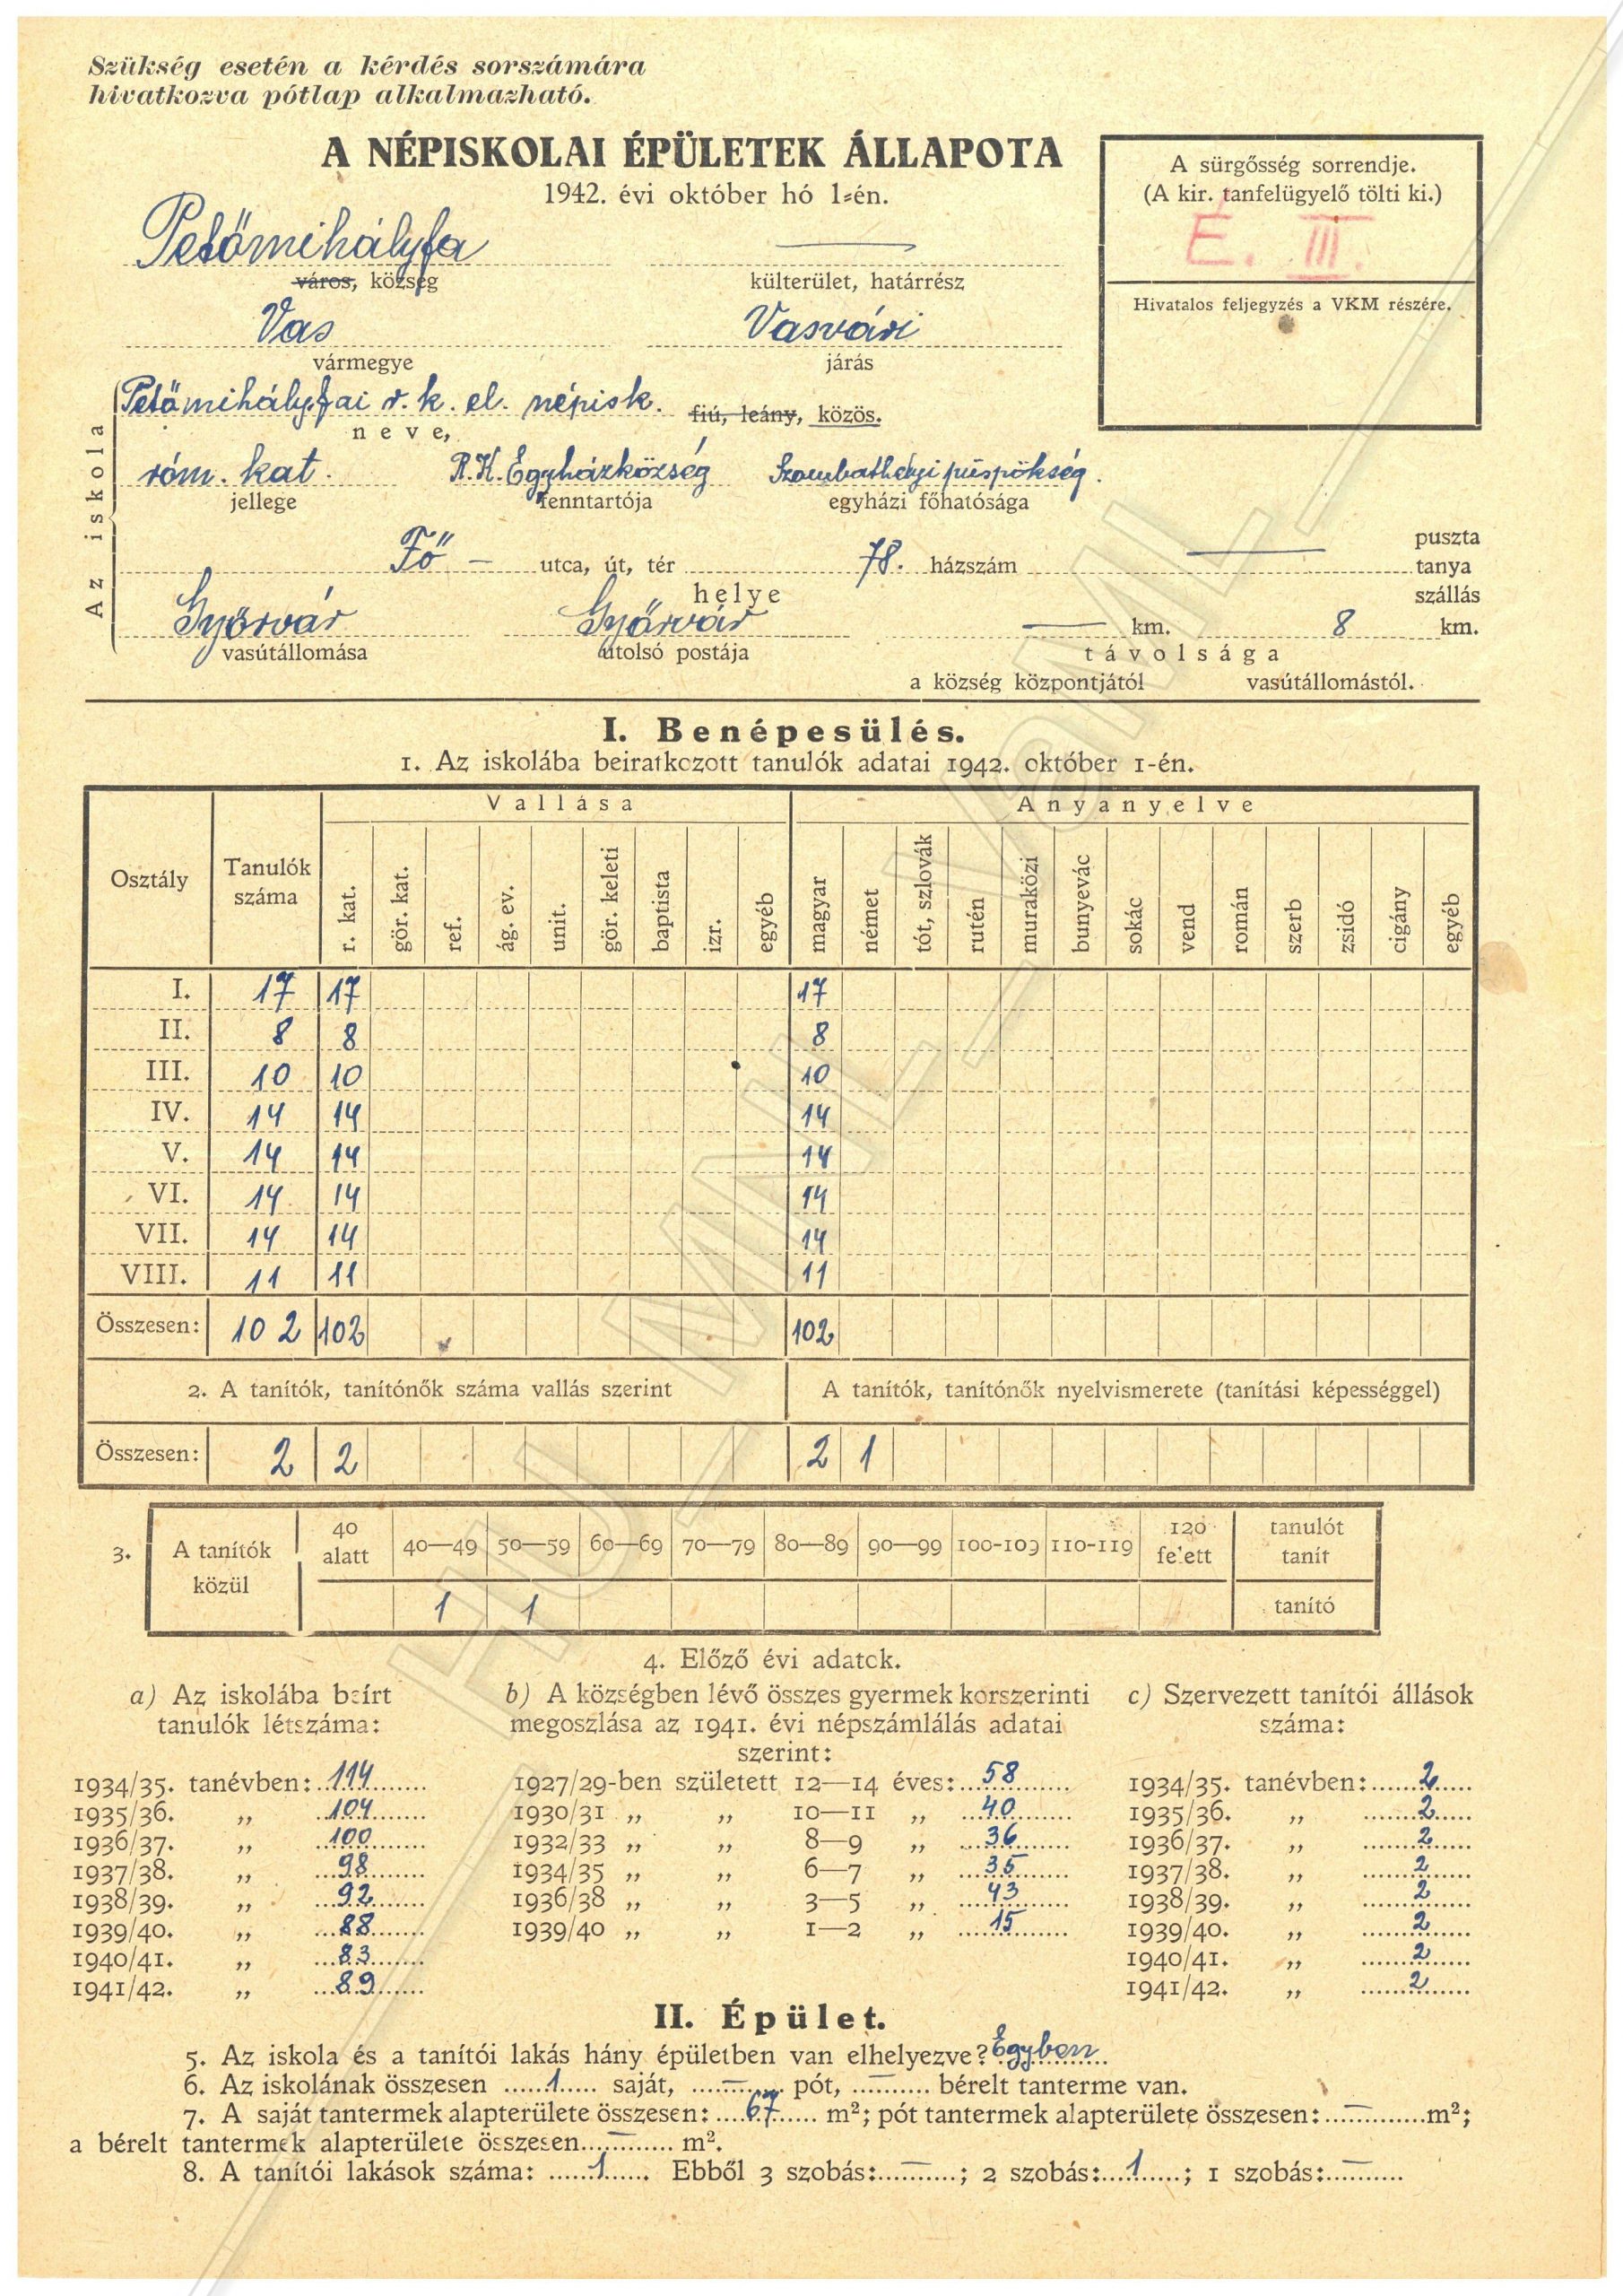 Szükség esetén a kérdés sorszámára
hivatkozva pótlap alkalmazható.
A NÉPISKOLAI ÉPÜLETEK ÁLLAPOTA
1942. évi október hó 1-én.
A sürgősség sorrendje.
(A kir. tanfelügyelő tölti ki.)
É. III.
Hivatalos feljegyzés a VKM részére.
Petőmihályfa —
város, község külterület, határrész
Vas Vasvári
vármegye járás
Az iskola
Petőmihályfai r. k. el. népisk. fiú, leány, közös.
neve,
róm. kat. R.K. Egyházközség Szombathelyi püspökség.
jellege fenntartója egyházi főhatósága
Fő — utca, út, tér 78. házszám — puszta
tanya
helye szállás
Győrvár Győrvár — km. 8 km.
vasútállomása utolsó postája távolsága
a község központjától vasútállomástól.
I. Benépesülés.
1. Az iskolába beiratkozott tanulók adatai 1942. október 1-én.
Vallása Anyanyelve
Osztály Tanulók száma r. kat. gör. kat. ref. ág. ev. unit. gör. keleti baptista izr. egyéb magyar német tót, szlovák rutén muraközi bunyevác sokác vend román szerb zsidó cigány egyéb
I. 17 17 17
II. 8 8 8
III. 10 10 10
IV. 14 14 14
V. 14 14 14
VI. 14 14 14
VII. 14 14 14
VIII. 11 11 11
Összesen: 102 102 102
2. A tanítók, tanítónők száma vallás szerint A tanítók, tanítónők nyelvismerete (tanítási képességgel)
Összesen: 2 2 2 1
3. A tanítók közül 40 alatt 40—49 50—59 60—69 70—79 80—89 90—99 100-109 110-119 120 felett tanulót tanít
1 1 tanító
4. Előző évi adatok.
a) Az iskolába beírt b) A községben lévő összes gyermek korszerinti c) Szervezett tanítói állások
tanulók létszáma: megoszlása az 1941. évi népszámlálás adatai száma:
szerint:
1934/35. tanévben: 114 1927/29-ben született 12—14 éves: 58 1934/35. tanévben: 2
1935/36. „ 104 1930/31 „ „ 10—11 „ 40 1935/36. „ 2
1936/37. „ 100 1932/33 „ „ 8—9 „ 36 1936/37. „ 2
1937/38. „ 98 1934/35 „ „ 6—7 „ 35 1937/38. „ 2
1938/39. „ 92 1936/38 „ „ 3—5 „ 43 1938/39. „ 2
1939/40. „ 88 1939/40 „ „ 1—2 „ 15 1939/40. „ 2
1940/41. „ 83 1940/41. „ 2
1941/42. „ 89 1941/42. „ 2
II. Épület.
5. Az iskola és a tanítói lakás hány épületben van elhelyezve? Egyben
6. Az iskolának összesen 1 saját, — pót, — bérelt tanterme van.
7. A saját tantermek alapterülete összesen: 67 m²; pót tantermek alapterülete összesen: — m²;
a bérelt tantermek alapterülete összesen — m².
8. A tanítói lakások száma: 1. Ebből 3 szobás: —; 2 szobás: 1; 1 szobás: —
HU_MNL_VaML